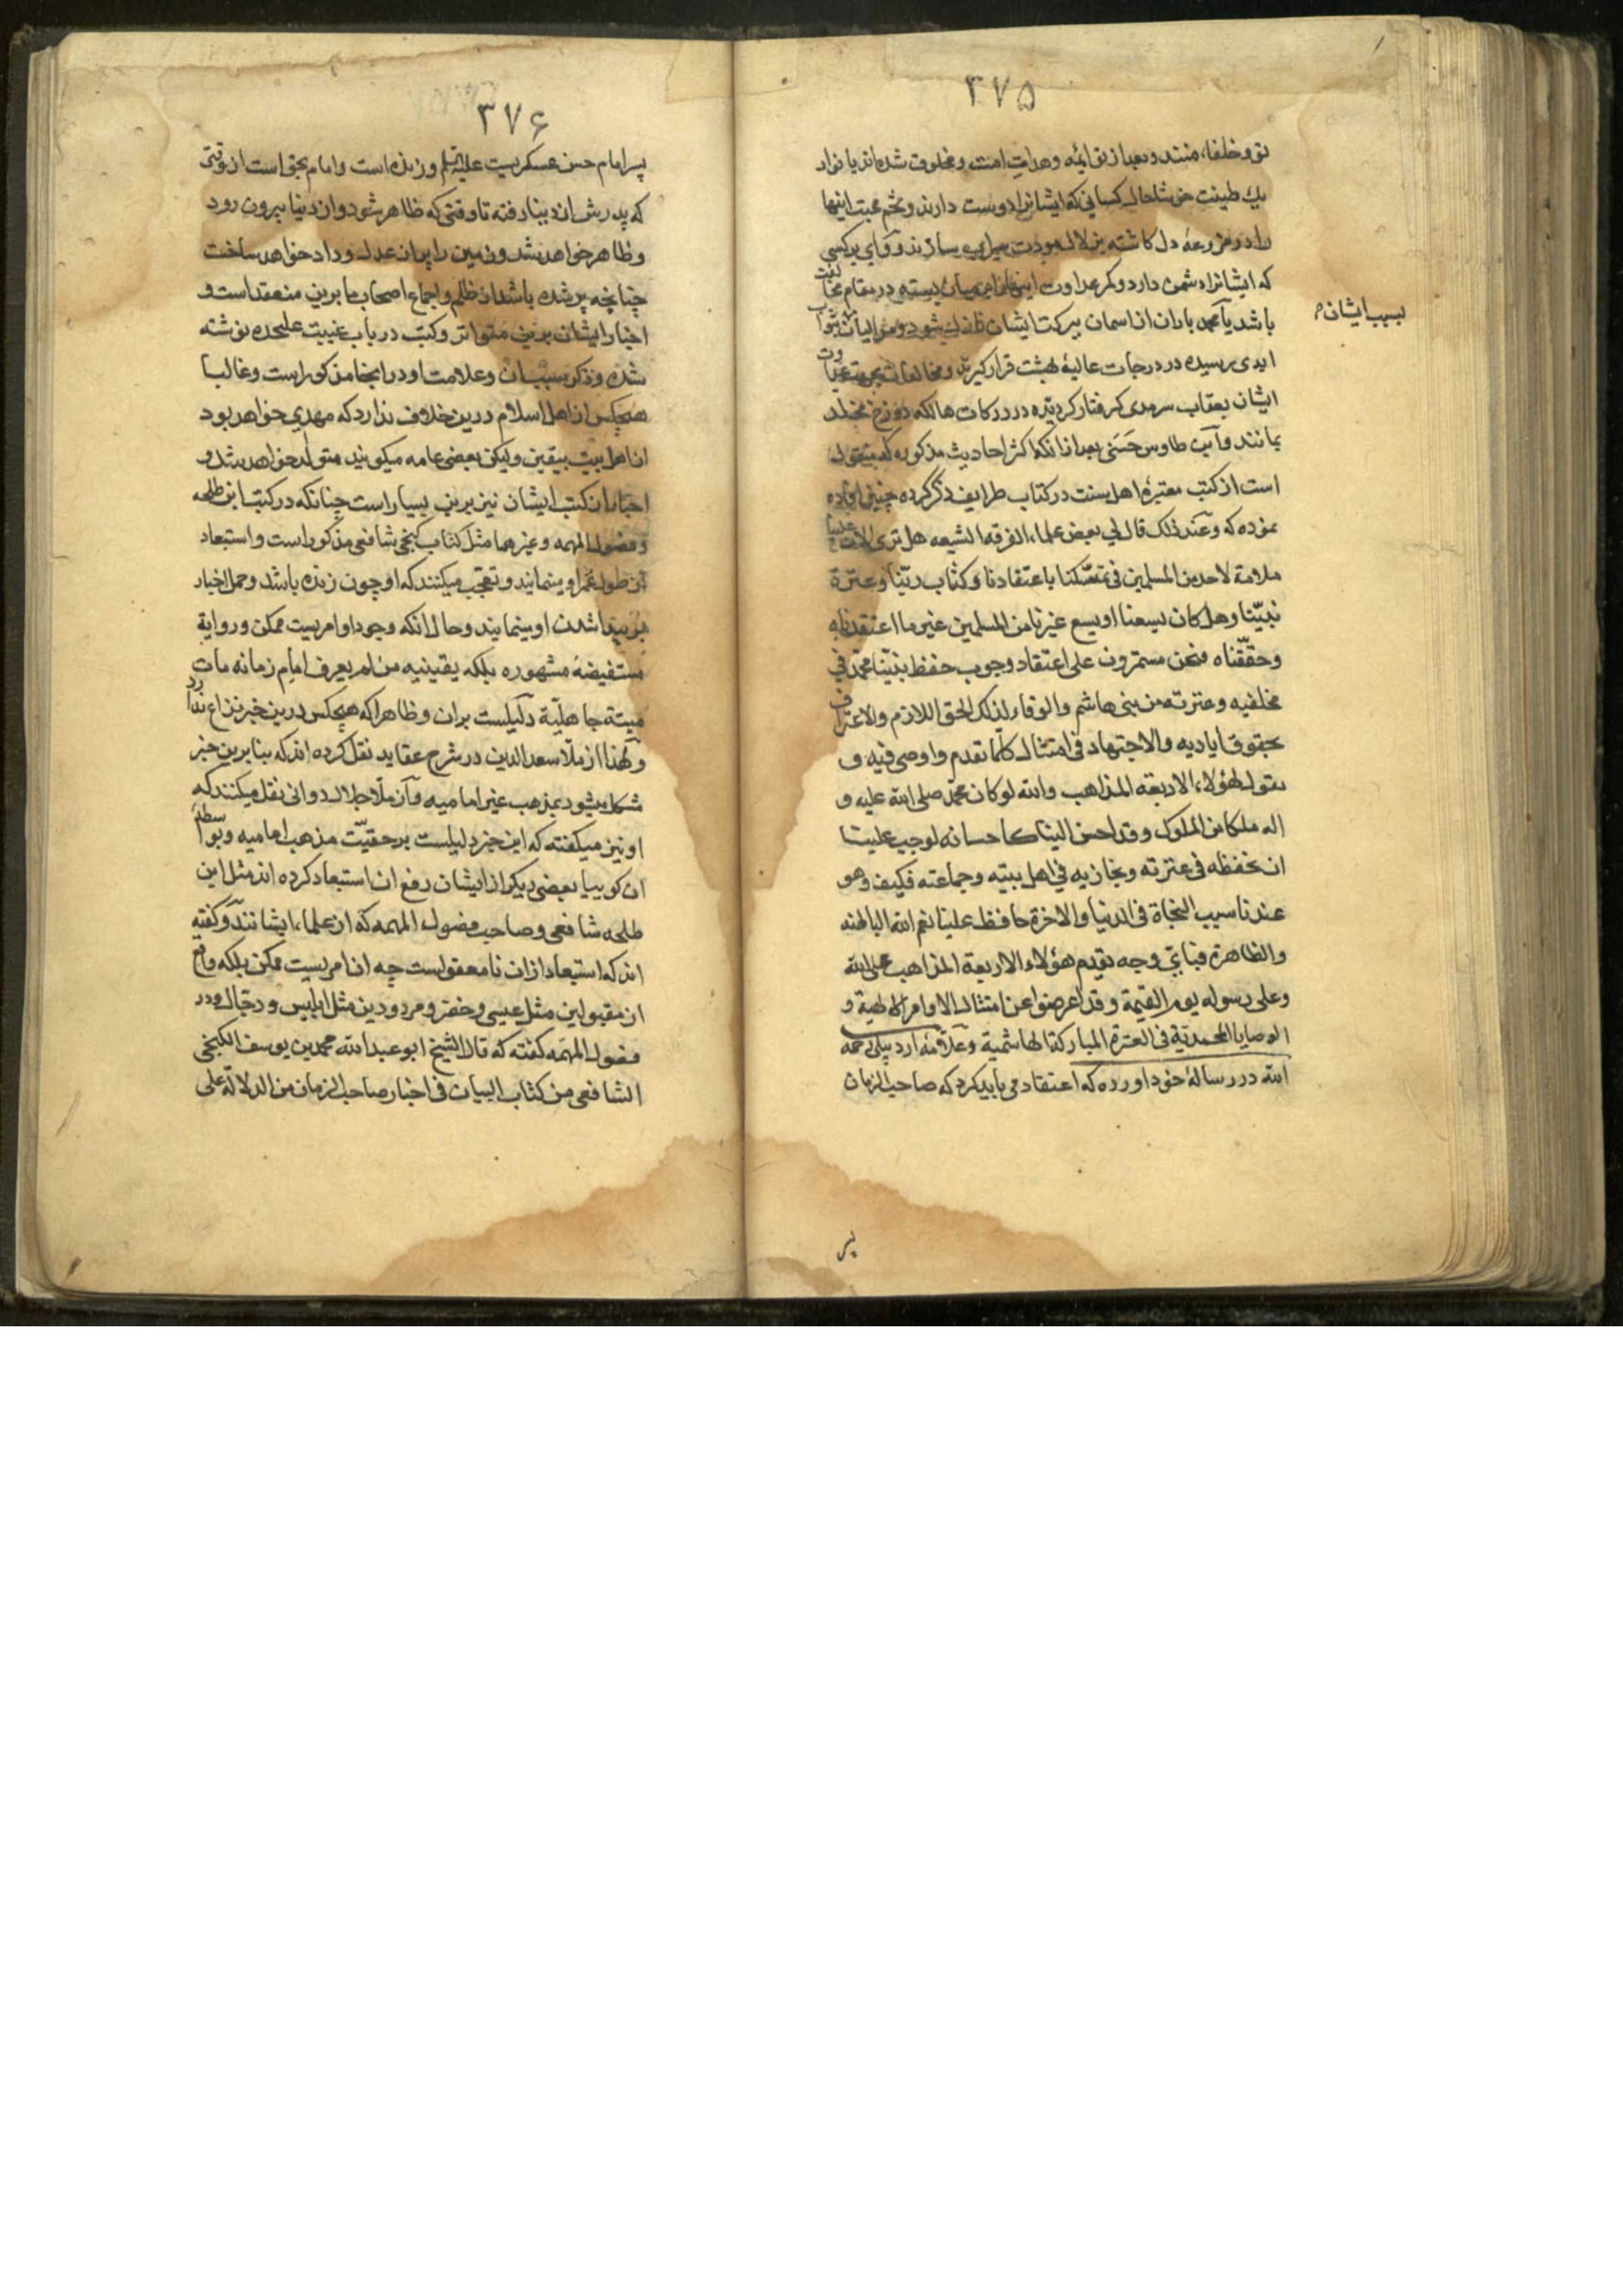 ۳۷۵
تو و خلفاء منتند و بعد از تو ائمه و هداة امت و مخلوق شده‌اند با تو از
یک طینت خوشا حال کسانی که ایشانرا دوست دارند و تخم محبت اینها
را در مزرعه دل کاشته بزلال مودت سیراب سازند و وای بر کسی
که ایشانرا دشمن دارد و کمر عداوت اینها را بر میان بسته در مقام مخالفت
باشد یا محمد باران از اسمان ببرکت ایشان نازل میشود و موالیان بثواب
بسبب ایشان
ابدی رسیده در درجات عالیهٔ بهشت قرار گیرند و مخالفان بجهت عداوت
ایشان بعقاب سرمدی گرفتار گردیده در درکات هالکه دوزخ مخلد
بمانند و ابن طاوس حسنی بعد از انکه اکثر احادیث مذکوره که منقول
است از کتب معتبرهٔ اهل سنت در کتاب طرایف ذکر کرده چنین افاده
نموده که و عند ذلک قال لی بعض علماء الفرقه الشیعه هل تری الان علینا
ملامة لاحد من المسلمین فی تمسکنا باعتقادنا و کتاب ربنا و عترة
نبینا و هل کان یسعنا او یسع غیرنا من المسلمین غیر ما اعتقدناه
و حققناه فنحن مستمرون علی اعتقاد وجوب حفظ نبینا محمد فی
مخلفیه و عترته من بنی هاشم و الوفاء لذلک الحق اللازم و الاعتراف
بحقوق ایادیه و الاجتهاد فی امتثال کلما تقدم و اوصی فیه و
نقول لهؤلاء الاربعة المذاهب والله لو کان محمد صلی الله علیه و
اله ملکا من الملوک و قد احسن الینا کاحسانه لوجب علینا
ان نحفظه فی عترته و نجازیه فی اهل بیته و جماعته فکیف و هو
عندنا سبب النجاة فی الدنیا و الاخرة حافظ علینا نعم الله الباطنه
و الظاهرة فبای وجه تقدم هؤلاء الاربعة المذاهب علی الله
و علی رسوله یوم القیمة و قد اعرضوا عن امتثال الاوامر الالهیة و
الوصایا المحمدیة فی العترة المبارکة الهاشمیة و علامهٔ اردبیلی رحمه
الله در رسالهٔ خود اورده که اعتقاد می باید کرد که صاحب الزمان
پسر
۳۷۶
پسر امام حسن عسکریست علیه السلم و زنده است و امام بحق است از وقتی
که پدرش از دنیا رفته تا وقتی که ظاهر شود و از دنیا بیرون رود
و ظاهر خواهد شد و زمین را پر از عدل و داد خواهد ساخت
چنانچه پر شده باشد از ظلم و اجماع اصحاب ما برین منعقد است و
اخبار ایشان برین متواتر و کتب در باب غیبت علیحده نوشته
شده و ذکر سبب ان و علامت او در اینجا مذکور است و غالبا
هیچکس از اهل اسلام درین خلاف ندارد که مهدی خواهد بود
از اهل بیت بیقین و لیکن بعضی عامه میگویند متولد خواهد شد و
اخبار از کتب ایشان نیز برین بسیار است چنانکه در کتب ابن طلحه
و فصول المهمه و غیرهما مثل کتاب کنجی شافعی مذکور است و استبعاد
از طول عمر او مینمایند و تعجب میکنند که او چون زنده باشد و حمل اخبار
بر پیدا شدن او مینمایند و حال انکه وجود او امریست ممکن و روایة
مستفیضهٔ مشهوره بلکه یقینیه من لم یعرف امام زمانه مات
میتة جاهلیة دلیلست بران و ظاهرا که هیچکس درین خبر نزاع ندارد
و لهذا از ملا سعد الدین در شرح عقاید نقل کرده اند که بنا برین خبر
مشکل میشود بمذهب غیر امامیه و از ملا جلال دوانی نقل میکنند که
او نیز میگفته که این خبر دلیلست بر حقیت مذهب امامیه و بواسطهٔ
ان گوییا بعضی دیگر از ایشان رفع ان استبعاد کرده اند مثل ابن
طلحه شافعی و صاحب فصول المهمه که از علماء ایشانند و گفته
اند که استبعاد ازان نامعقولست چه ان امریست ممکن بلکه واقع
از مقبولین مثل عیسی و خضر و مردودین مثل ابلیس و دجال و در
فصول المهمه گفته که قال الشیخ ابو عبد الله محمد بن یوسف الکنجی
الشافعی من کتاب البیان فی اخبار صاحب الزمان من الدلالة علی